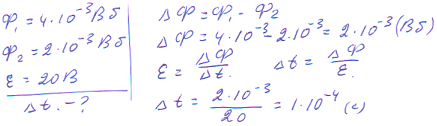 Ф₁ = 4·10⁻³ Вб
Ф₂ = 2·10⁻³ Вб
ε = 20 В
Δt. - ?
Δ Ф = Ф₁ - Ф₂
Δ Ф = 4·10⁻³ - 2·10⁻³ = 2·10⁻³ (Вб)
ε = ΔФ/Δt. Δt = ΔФ/ε.
Δt = 2·10⁻³/20 = 1·10⁻⁴ (с)